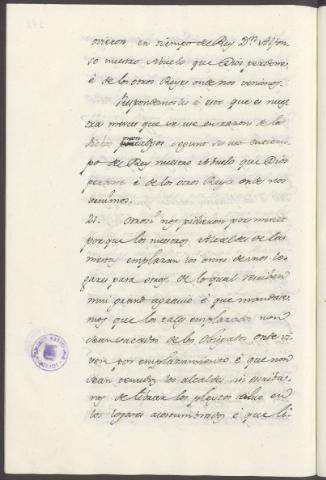 ovieron en tiempo del Rey Dn. Alfon
so nuestro Abuelo que Dios perdone
é de los otros Reyes onde nos venimos.
Respondemos á esto que es nues
tra merced que se use en razon de la
dicha segunt se usó en tiem
po del Rey nuestro Abuelo que Dios
perdone é de los otros Reyes onde nos
venimos.
21. Otrosi nos pidieron por merced
porque los nuestros Alcaldes de las
mestas emplazan los omes de unos lo
gares para otros, de lo qual reciben
mui grand agravio é que mandase
mos que los tales emplazados non
sean sacados de los Obispados onde vi
ven por emplazamiento é que non
sean tenudos los alcaldes
de librar los pleytos salvo en
los logares acostumbrados é que li-